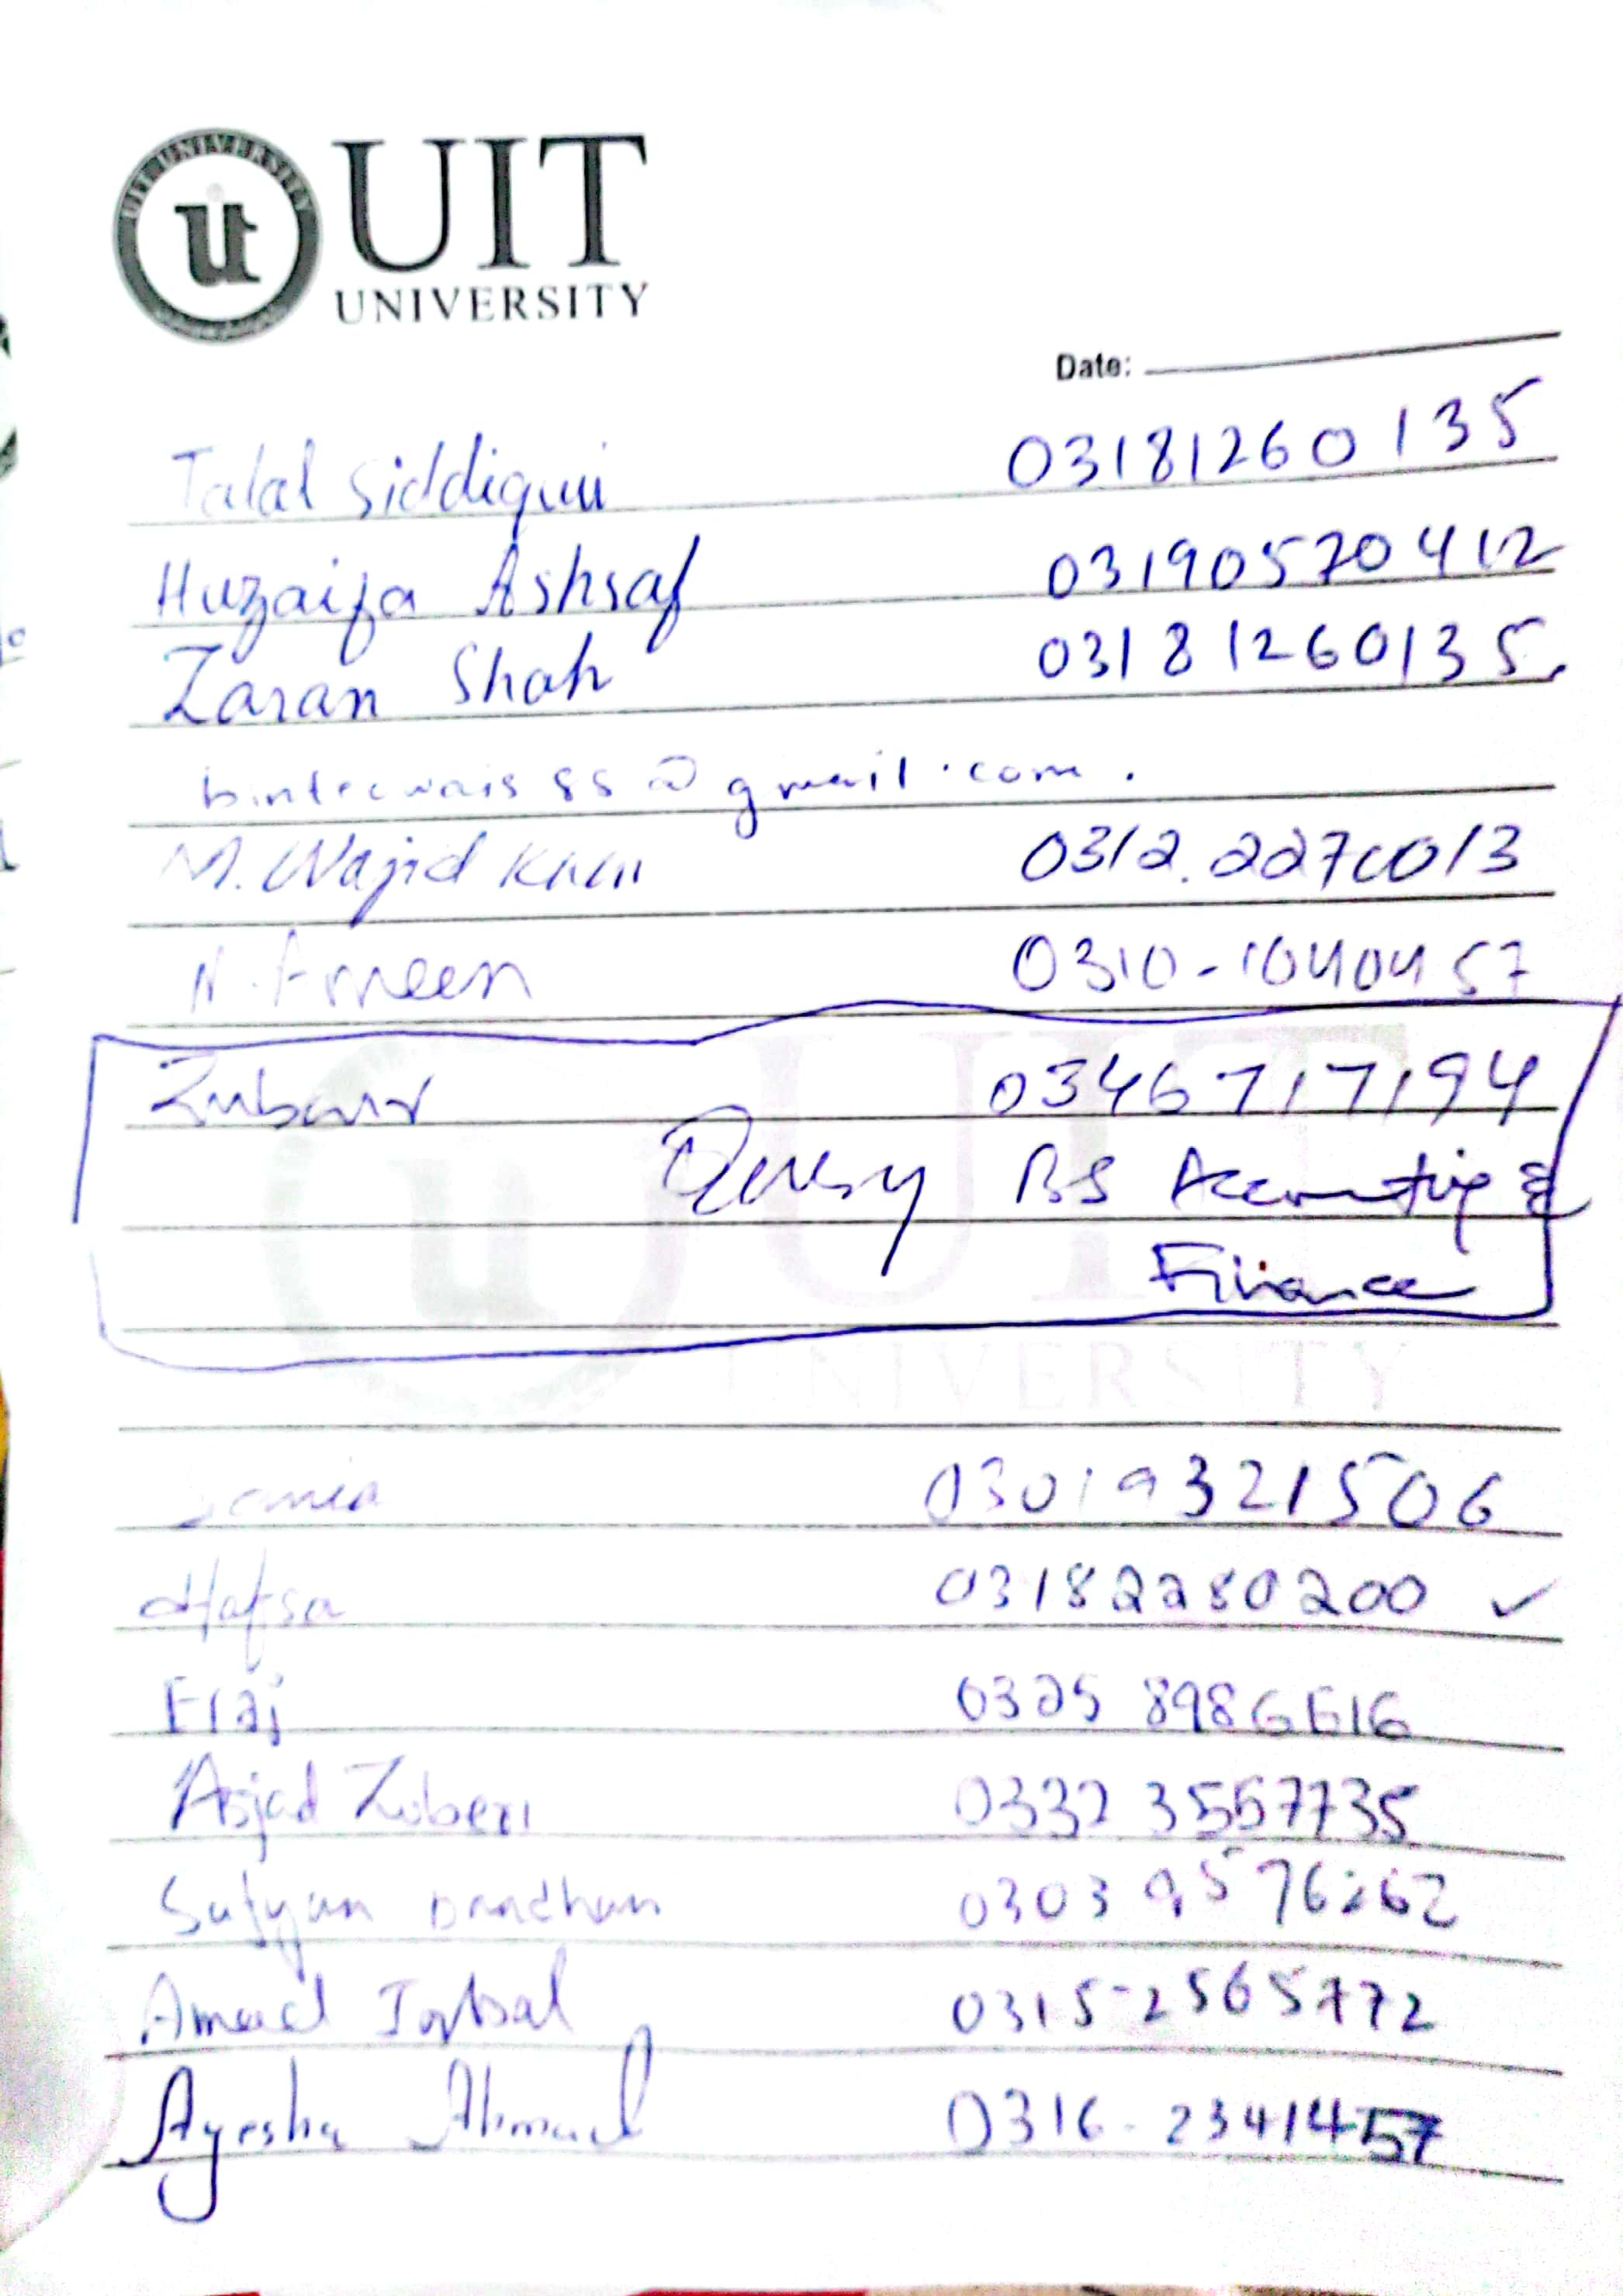 UIT UNIVERSITY
ut
UIT
UNIVERSITY
Date:
Talal Siddiqui 03181260135
Huzaifa Ashraf 03190570412
Zaran Shah 03181260135
binteowais88@gmail.com.
M. Wajid Khan 0312.2270013
N. Ameen 0310-1040457
Zubair 03467171194
Query BS Accounting &
Finance
UIT
UNIVERSITY
03019321506
Hafsa 03182280200 ✓
Eraj 0325 8986616
Asjad Zuberi 0332 3557735
Sufyan
Amad Iqbal 0315-2565772
Ayesha Ahmad 0316-2341457